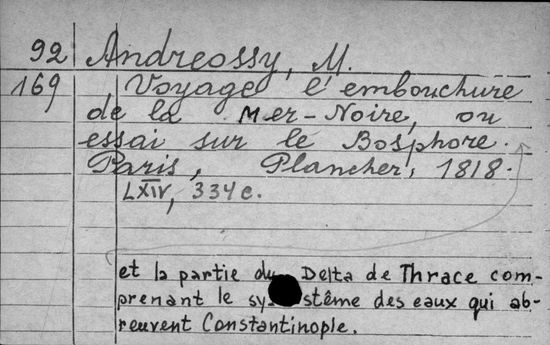 92 Andreossy, M.
169 Voyage l'embouchure
de la Mer-Noire, ou
essai sur le Bosphore.
Paris, Plancher, 1818.
LXIV, 334 c.
et la partie du Delta de Thrace com-
prenant le sy stême des eaux qui ab-
reuvent Constantinople.